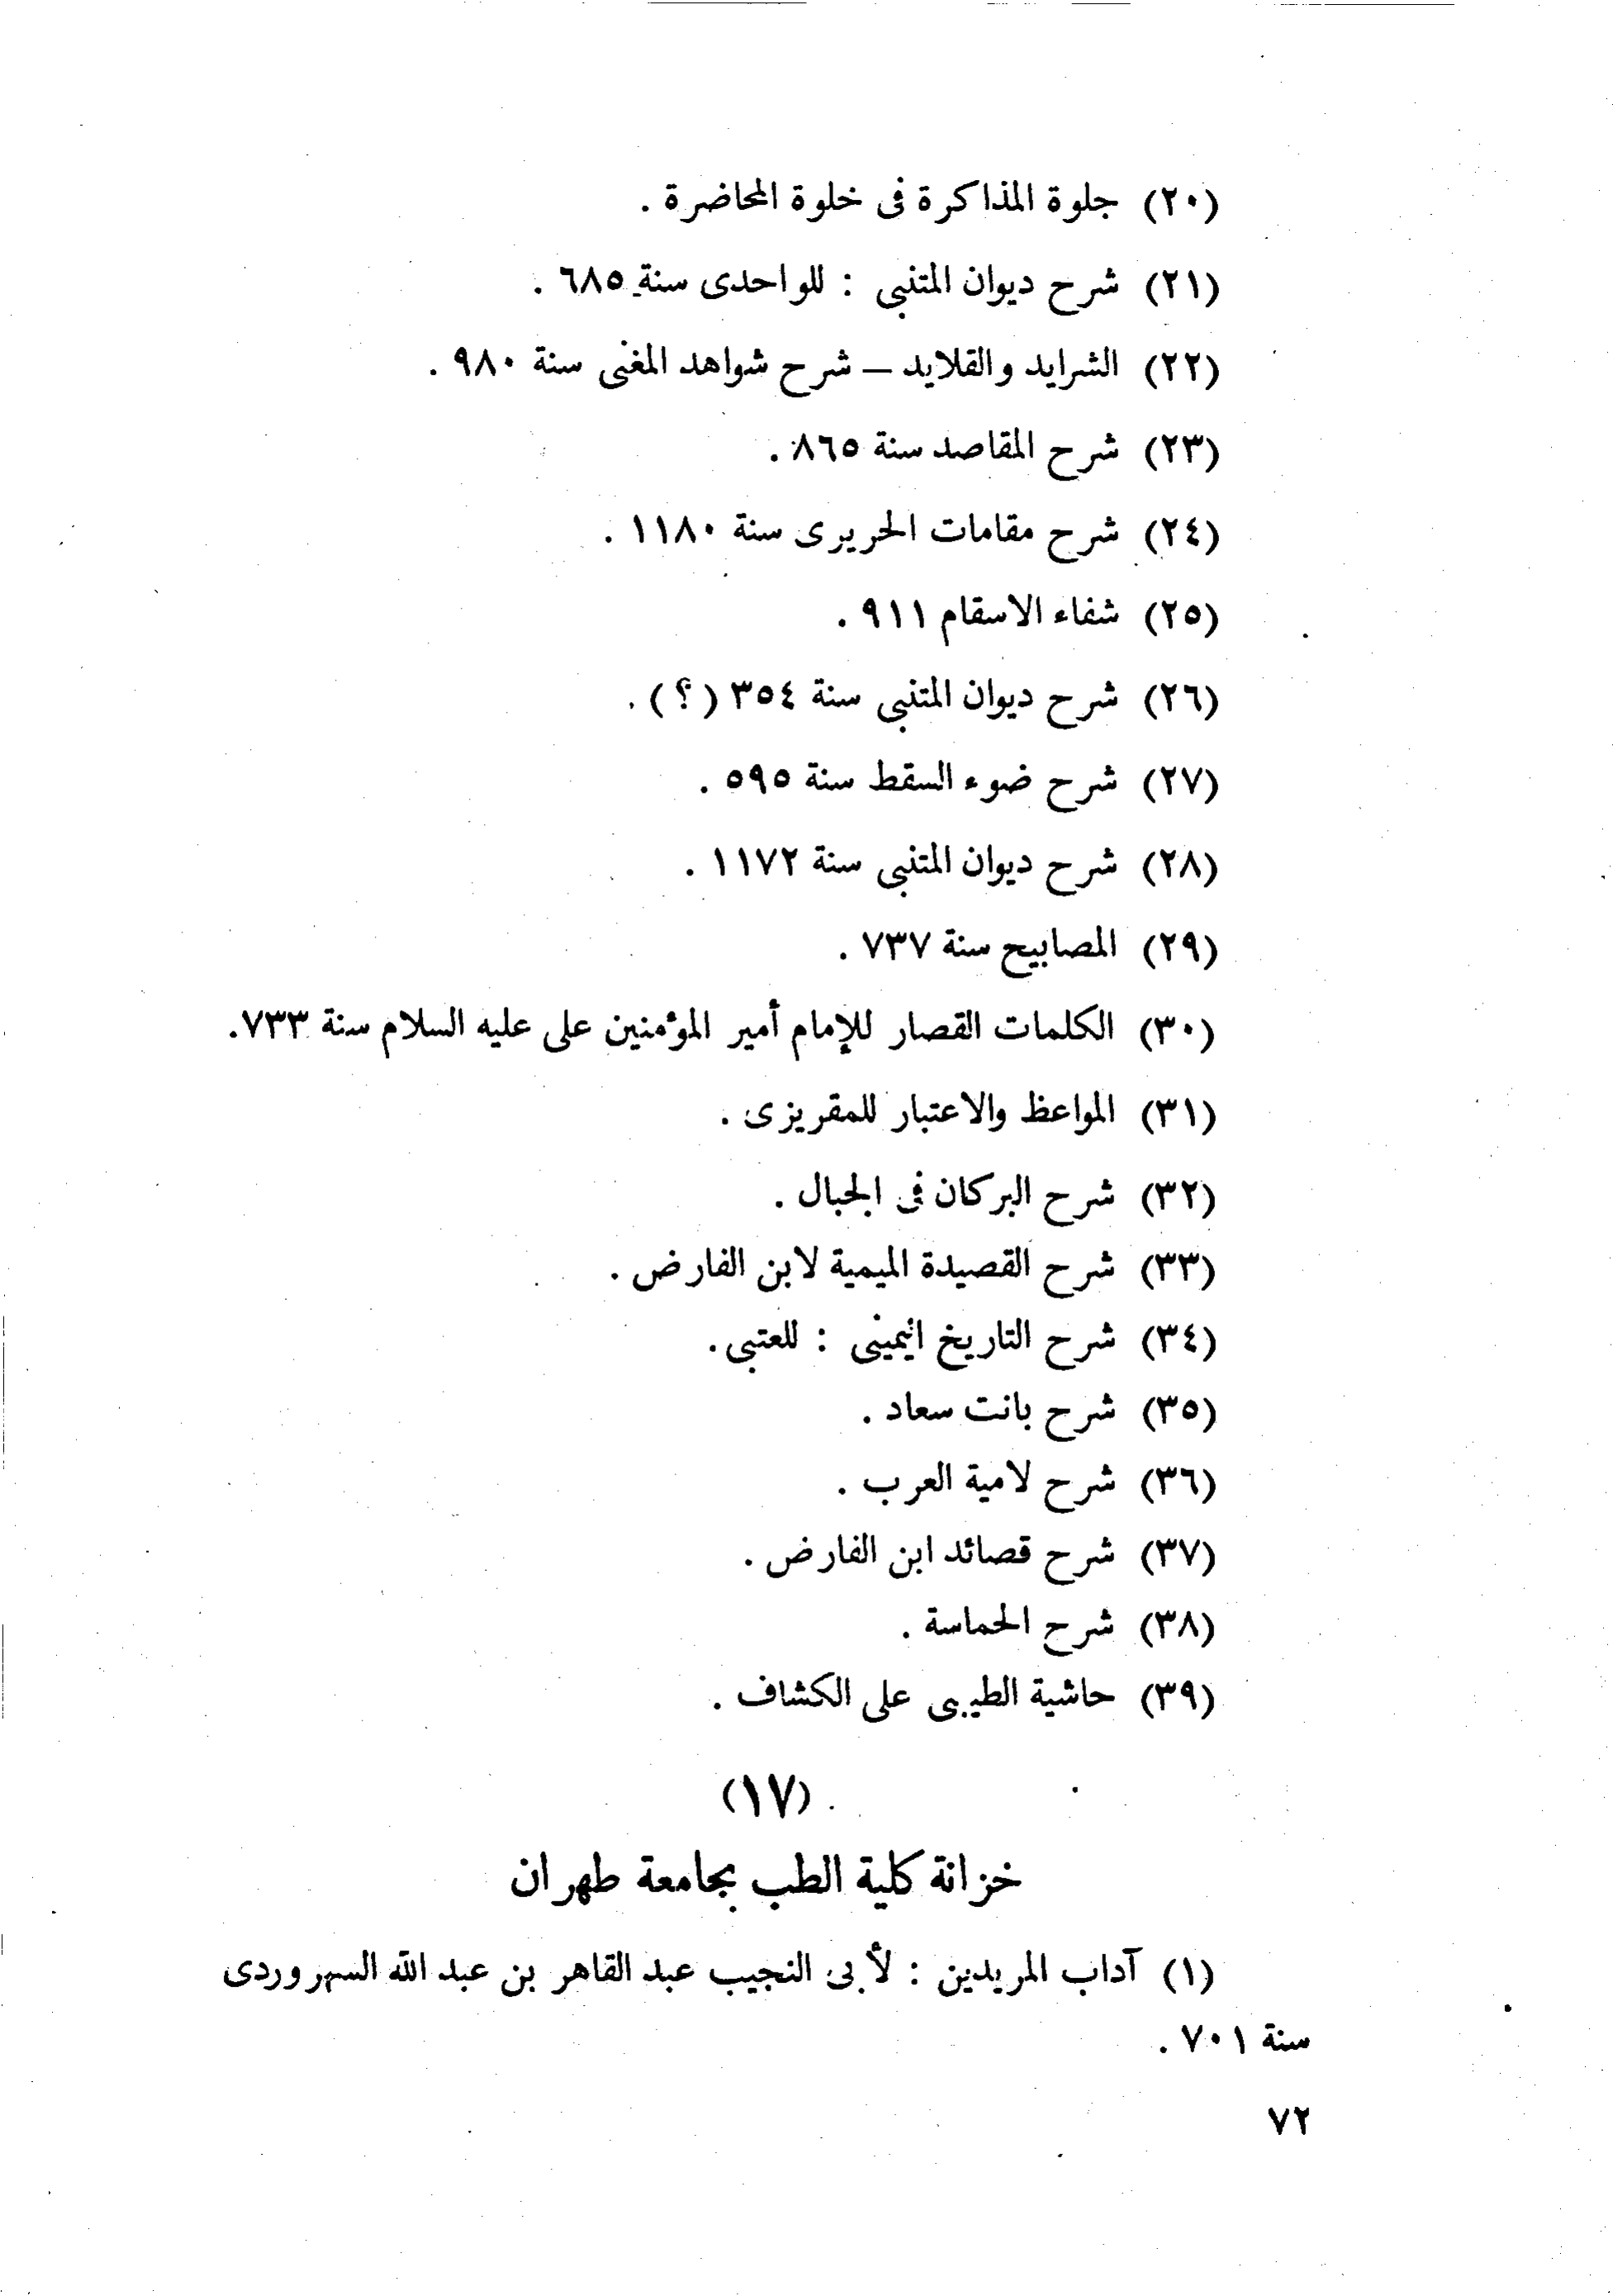 (٢٠) جلوة المذاكرة فى خلوة المحاضرة .
(٢١) شرح ديوان المتنبى : للواحدى سنة ٦٨٥ .
(٢٢) الشرايد والقلايد – شرح شواهد المغنى سنة ٩٨٠ .
(٢٣) شرح المقاصد سنة ٨٦٥ .
(٢٤) شرح مقامات الحريرى سنة ١١٨٠ .
(٢٥) شفاء الاسقام ٩١١ .
(٢٦) شرح ديوان المتنبى سنة ٣٥٤ (؟) .
(٢٧) شرح ضوء السقط سنة ٥٩٥ .
(٢٨) شرح ديوان المتنبى سنة ١١٧٢ .
(٢٩) المصابيح سنة ٧٣٧ .
(٣٠) الكلمات القصار للإمام أمير المؤمنين على عليه السلام سنة ٧٣٣.
(٣١) المواعظ والاعتبار للمقريزى .
(٣٢) شرح البركان فى الجبال .
(٣٣) شرح القصيدة الميمية لابن الفارض .
(٣٤) شرح التاريخ اليمينى : للعتبى.
(٣٥) شرح بانت سعاد .
(٣٦) شرح لامية العرب .
(٣٧) شرح قصائد ابن الفارض .
(٣٨) شرح الحماسة .
(٣٩) حاشية الطيبى على الكشاف .
(١٧)
خزانة كلية الطب بجامعة طهران
(١) آداب المريدين : لأبى النجيب عبد القاهر بن عبد الله السهروردى
سنة ٧٠١ .
٧٢